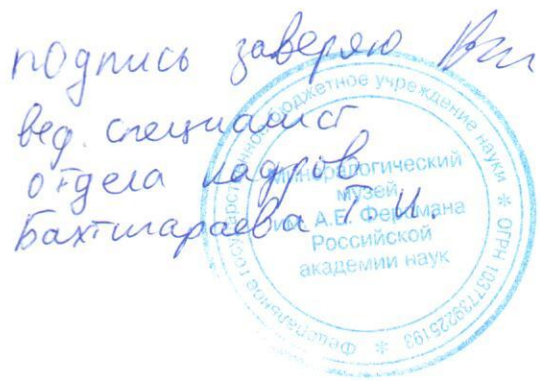 подпись заверяю
вед. специалист
отдела кадров
Бахтигараева Т. И.
Федеральное государственное бюджетное учреждение науки * ОГРН 1037739225193 *
Минералогический
музей
им. А.Е. Ферсмана
Российской
академии наук